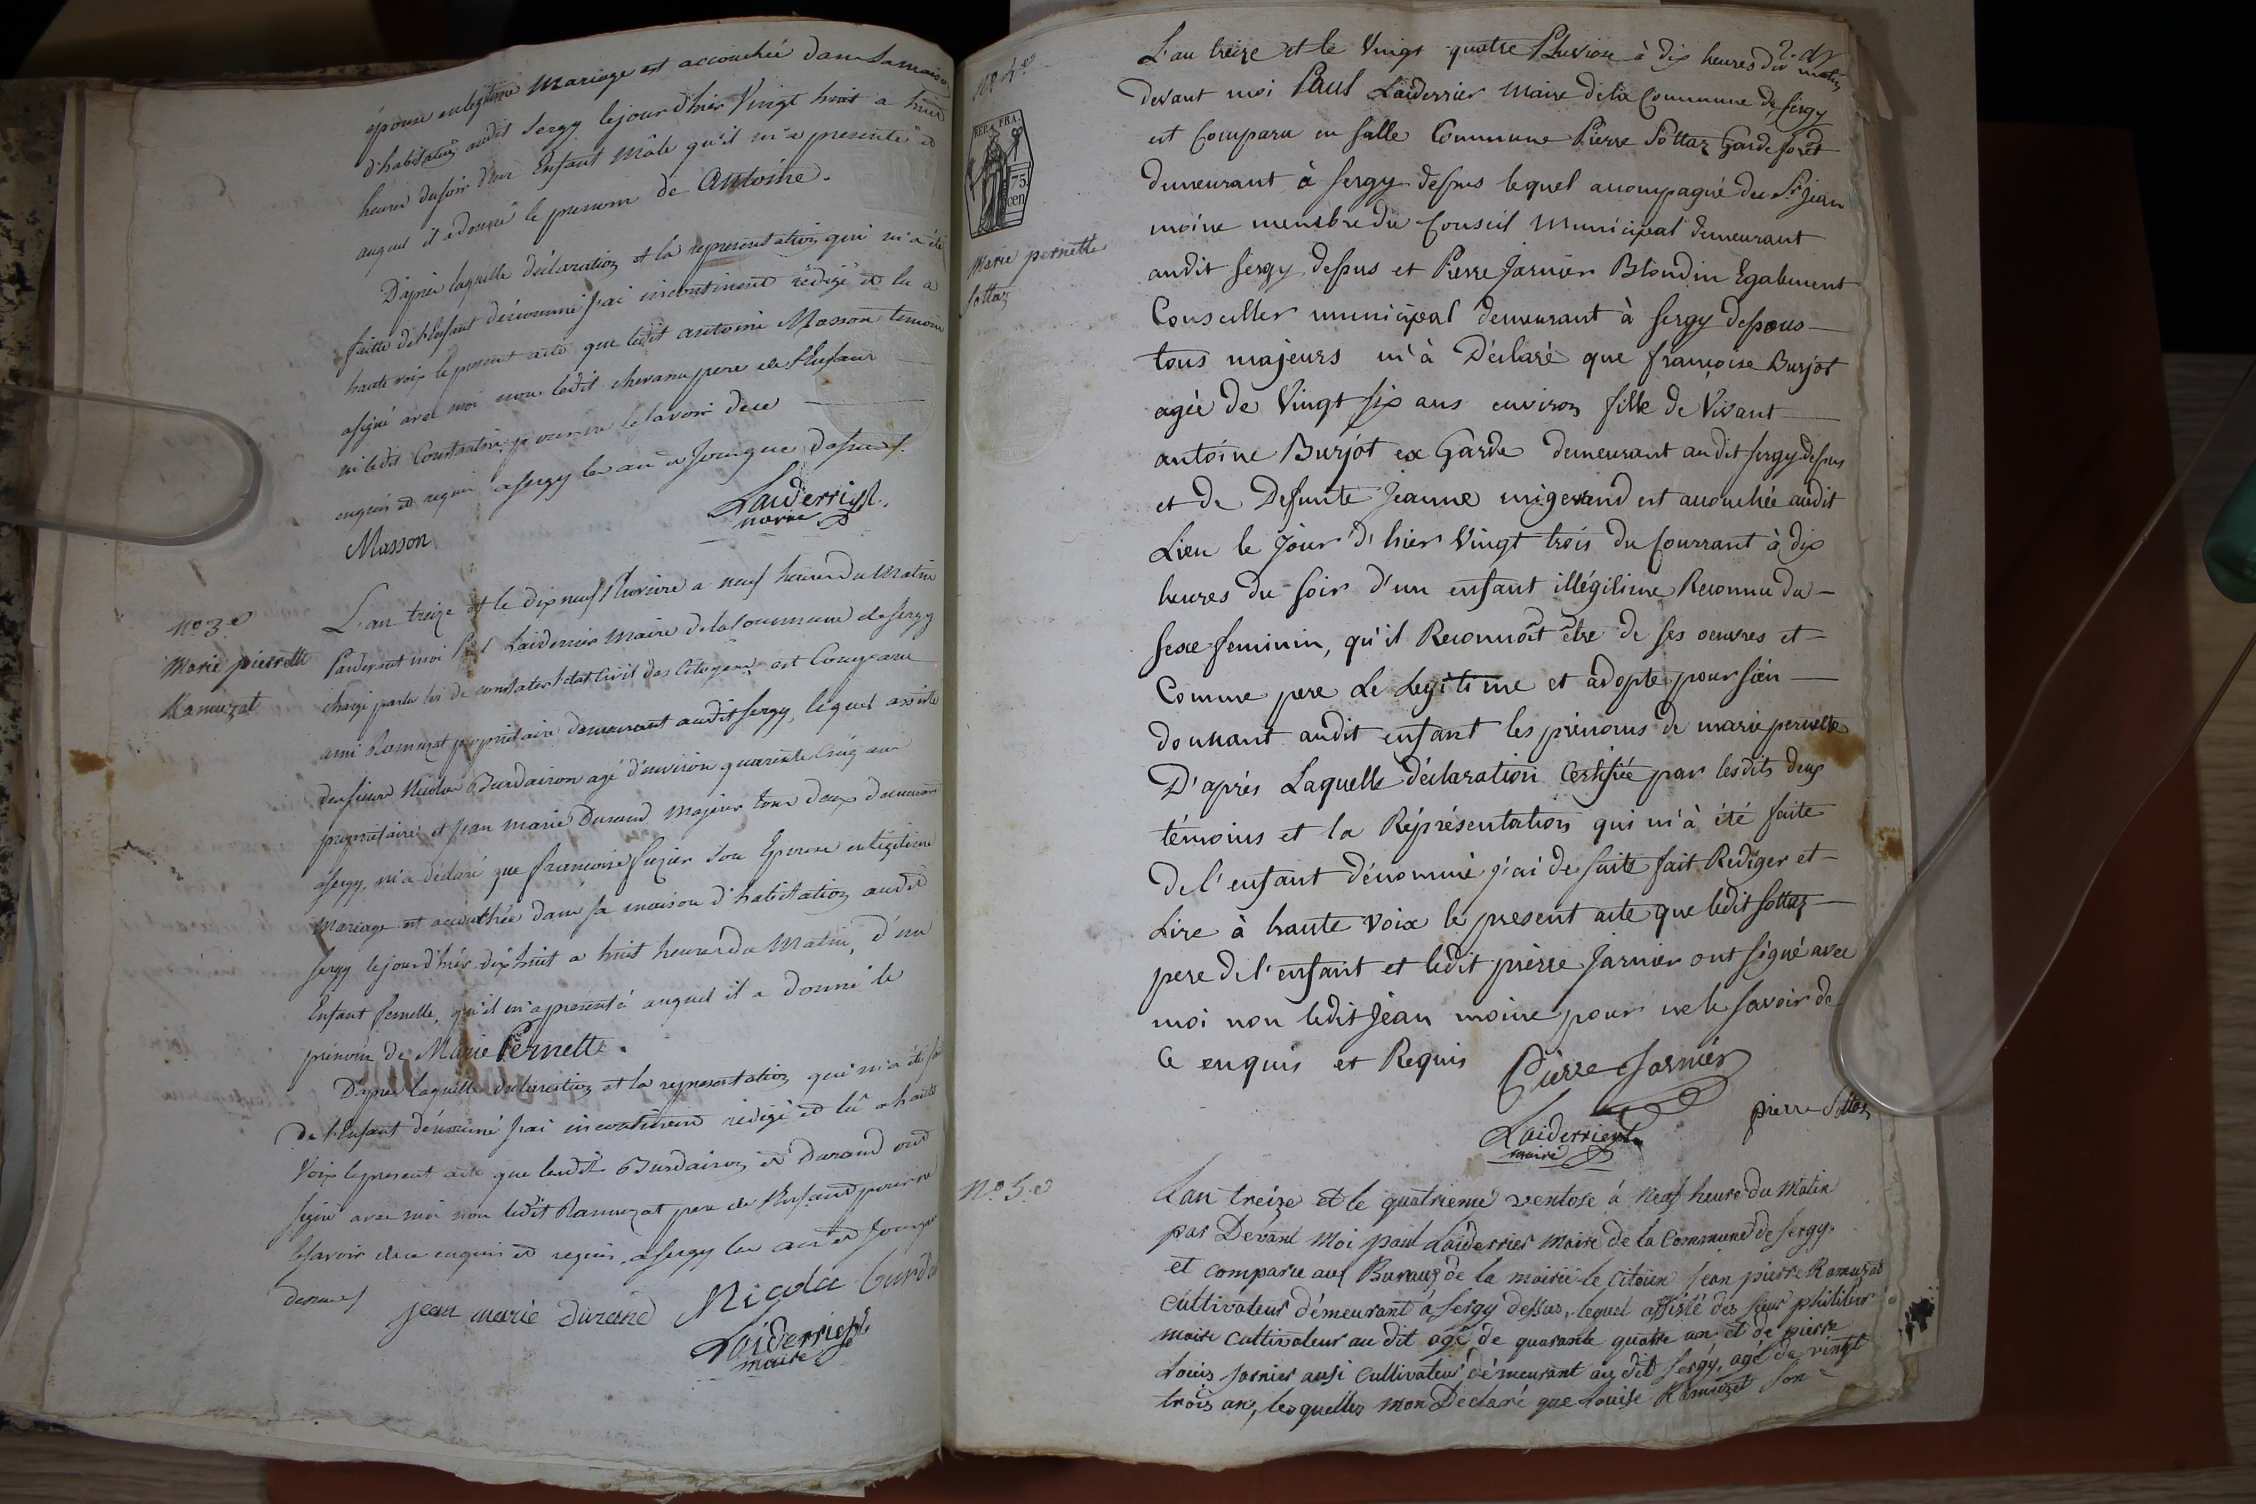 épouse en legitime Mariage est accouchée dans Sa maison
d'habitation audit Sergy le jour d'hier Vingt huit a huit
heures du soir d'un Enfant Mâle qu'il m'a presenté et
auquel il a donné le prenom de Antoine.
D'apres laquelle déclaration et la representation qui m'a été
faitte de l'Enfant dénommé j'ai incontinent rédigé et lu a
haute voix le present acte que ledit antoine Masson temoin
a signé avec moi non ledit pere de l'Enfant
ni ledit Constantin pour ne le savoir de ce
enquis et requis a Sergy les an et jour que dessus.
Laiderrier
maire
Masson
No 3e
Marie pierrette
Ramuzat
L'an treize et le dix neuf Pluviose a neuf heures du Matin
Pardevant moi Paul Laiderrier Maire de la Commune de Sergy
chargé par la loi de constater l'etat Civil des Citoyens est Comparu
ami Ramuzat proprietaire demeurant audit Sergy, lequel assisté
des sieurs Nicolas Burdairon agé d'environ quarante Cinq ans
proprietaire et Jean marie Durand Majeur tous deux demeurant
a Sergy, m'a déclaré que francoise Suzier Son Epouse en legitime
Mariage est accouchée dans sa maison d'habitation audit
Sergy le jour d'hier dix huit a huit heures du Matin, d'un
Enfant femelle, qu'il m'a presenté auquel il a donné le
prénom de Marie Pernette.
D'apres laquelle declaration et la representation qui m'a été fa
de l'Enfant dénommé j'ai incontinent rédigé et lu a haute
Voix le present acte que lesdits Burdairon et Durand ont
signé avec moi non ledit Ramuzat pere de l'Enfant pour ne
le savoir de ce enquis et requis, a Sergy les an et jour que
dessus
jean marie durand Nicola burda
Laiderrier
maire
No 4e
REP. FRA.
75
cen
Marie pernette
Sottaz
L'an treize et le Vingt quatre Pluviose à dix heures du matin
devant moi Paul Laiderrier Maire de la Commune de Sergy
est Comparu en Salle Commune Pierre Sottaz Garde forêt
demeurant à Sergy dessus lequel accompagné du Sr Jean
moine membre du Conseil Municipal demeurant
audit Sergy dessus et Pierre Jarnier Blondin Egalement
Conseiller municipal demeurant à Sergy dessous
tous majeurs m'à Déclaré que françoise Burjot
agée de Vingt six ans environ fille de Vivant
antoine Burjot ex Garde demeurant audit Sergy dessus
et de Defunte Jeanne migerand est accouchée audit
Lieu le jour d'hier Vingt trois du Courrant à dix
heures du soir d'un enfant illégitime Reconnu du
sexe feminin, qu'il Reconnoit être de ses oeuvres et
Comme pere Le Legitime et adopte pour sien
donnant audit enfant les prénoms de marie pernette
D'après Laquelle déclaration Certifiée par lesdits deux
témoins et la Réprésentation qui m'à été faite
de l'enfant dénommé j'ai de suite fait Rediger et
Lire à haute voix le present acte que ledit Sottaz
pere de l'enfant et ledit pierre Jarnier ont signé avec
moi non ledit Jean moine pour ne le savoir de
Ce enquis et Requis
Pierre Jarnier
pierre Sottaz
Laiderrier
maire
No 5e
Lan treize et le quatrieme ventose á neuf heure du Matin
par Devant Moi paul Laiderrier Maire de la Commune de Sergy.
et comparu aux Buraux de la mairie le Citoien Jean pierre Ramuzat
Cultivateur démeurant á Sergy dessus, lequel assisté des sieur philiber
moire cultivateur au dit agé de quarante quatre an et de pierre
Louis Jarnier ausi cultivateur démeurant au dit Sergy, agé de vingt
trois ans, lesquelles mon Declaré que Louise Ramuzat Son